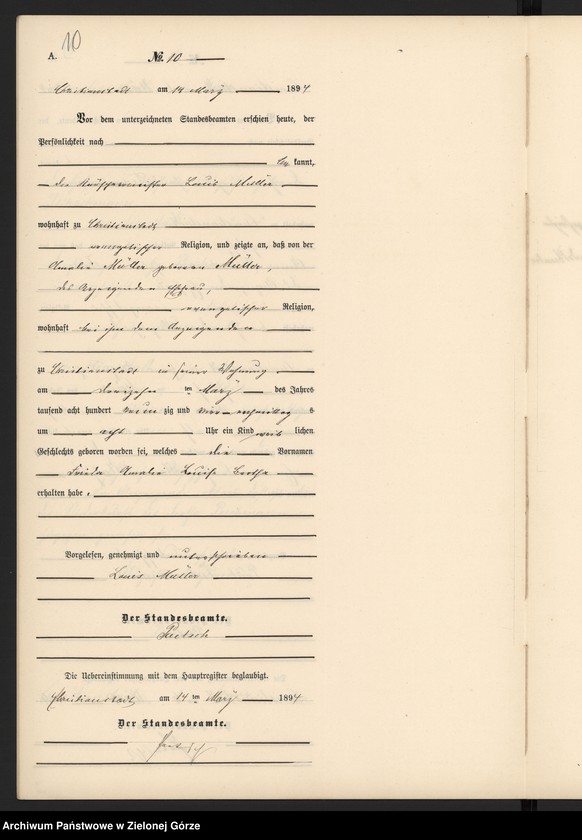 10
A.
№. 10
Christianstadt am 14 März 1894.
Vor dem unterzeichneten Standesbeamten erschien heute, der
Persönlichkeit nach
be kannt,
der Louis Müller
wohnhaft zu Christianstadt
evangelischer Religion, und zeigte an, daß von der
Amalie Müller geborenen Müller,
des Anzeigenden Ehefrau,
evangelischer Religion,
wohnhaft bei ihm dem Anzeigenden
zu Christianstadt in seiner Wohnung
am dreizehn ten März des Jahres
tausend acht hundert neun zig und vier mittag s
um acht Uhr ein Kind weib lichen
Geschlechts geboren worden sei, welches die Vornamen
Frieda Amalie Louise Bertha
erhalten habe.
Vorgelesen, genehmigt und unterschrieben
Louis Müller
Der Standesbeamte.
Die Uebereinstimmung mit dem Hauptregister beglaubigt.
Christianstadt am 14 ten März 1894
Der Standesbeamte.
Archiwum Państwowe w Zielonej Górze